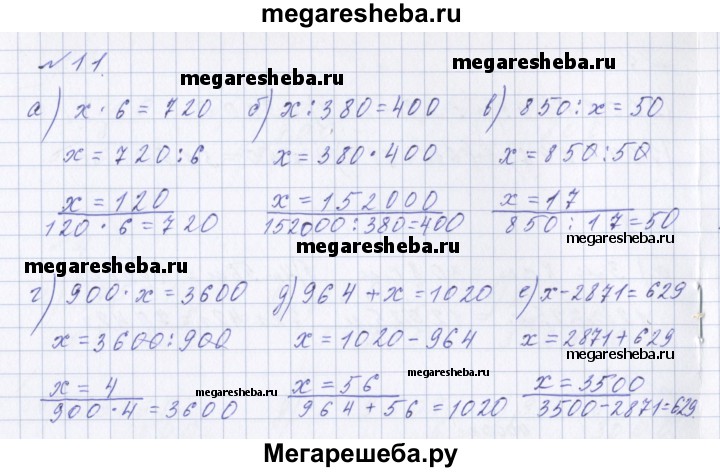 megaresheba.ru
№11.
megaresheba.ru megaresheba.ru
а) x · 6 = 720 б) x : 380 = 400 в) 850 : x = 50
x = 720 : 6 x = 380 · 400 x = 850 : 50
x = 120 x = 152000 x = 17
120 · 6 = 720 152000 : 380 = 400 850 : 17 = 50
megaresheba.ru megaresheba.ru
megaresheba.ru
г) 900 · x = 3600 д) 964 + x = 1020 е) x - 2871 = 629
x = 3600 : 900 x = 1020 - 964 x = 2871 + 629
megaresheba.ru
x = 4 megaresheba.ru x = 56 megaresheba.ru x = 3500
900 · 4 = 3600 964 + 56 = 1020 3500 - 2871 = 629
Мегарешеба.ру